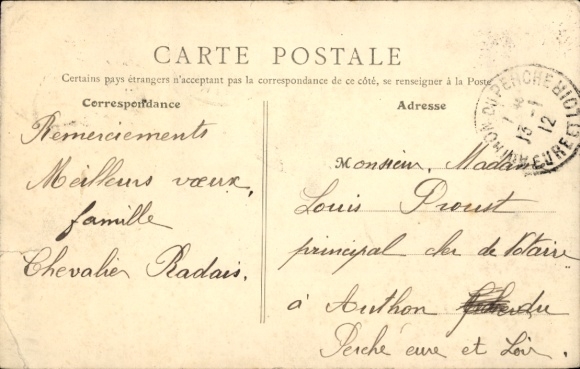 CARTE POSTALE
Certains pays étrangers n'acceptant pas la correspondance de ce côté, se renseigner à la Poste
Correspondance
Remerciements
Meilleurs vœux,
famille
Chevalier Radais.
Adresse
Monsieur, Madame
Louis Proust
principal cler de Notaire
à Authon du
Perche eure et Loir.